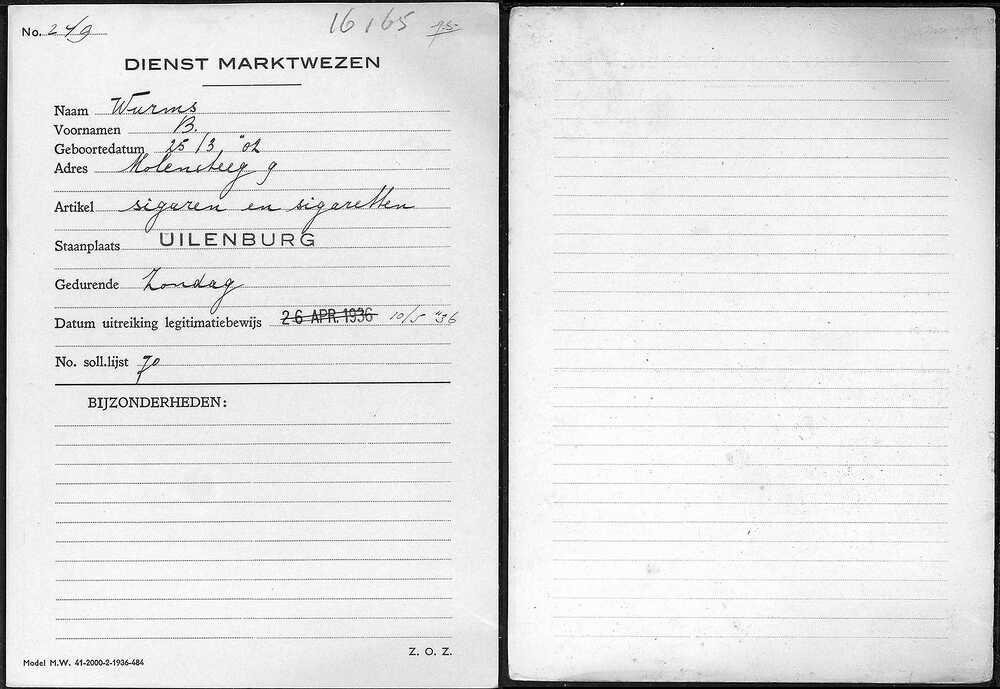 No. 249 16165
DIENST MARKTWEZEN
Naam Wurms
Voornamen B.
Geboortedatum 25/3 "02
Adres Molensteeg 9
Artikel sigaren en sigaretten
Staanplaats UILENBURG
Gedurende Zondag
Datum uitreiking legitimatiebewijs 26 APR. 1936 10/5 "36
No. soll.lijst 70
BIJZONDERHEDEN:
Z. O. Z.
Model M.W. 41-2000-2-1936-484